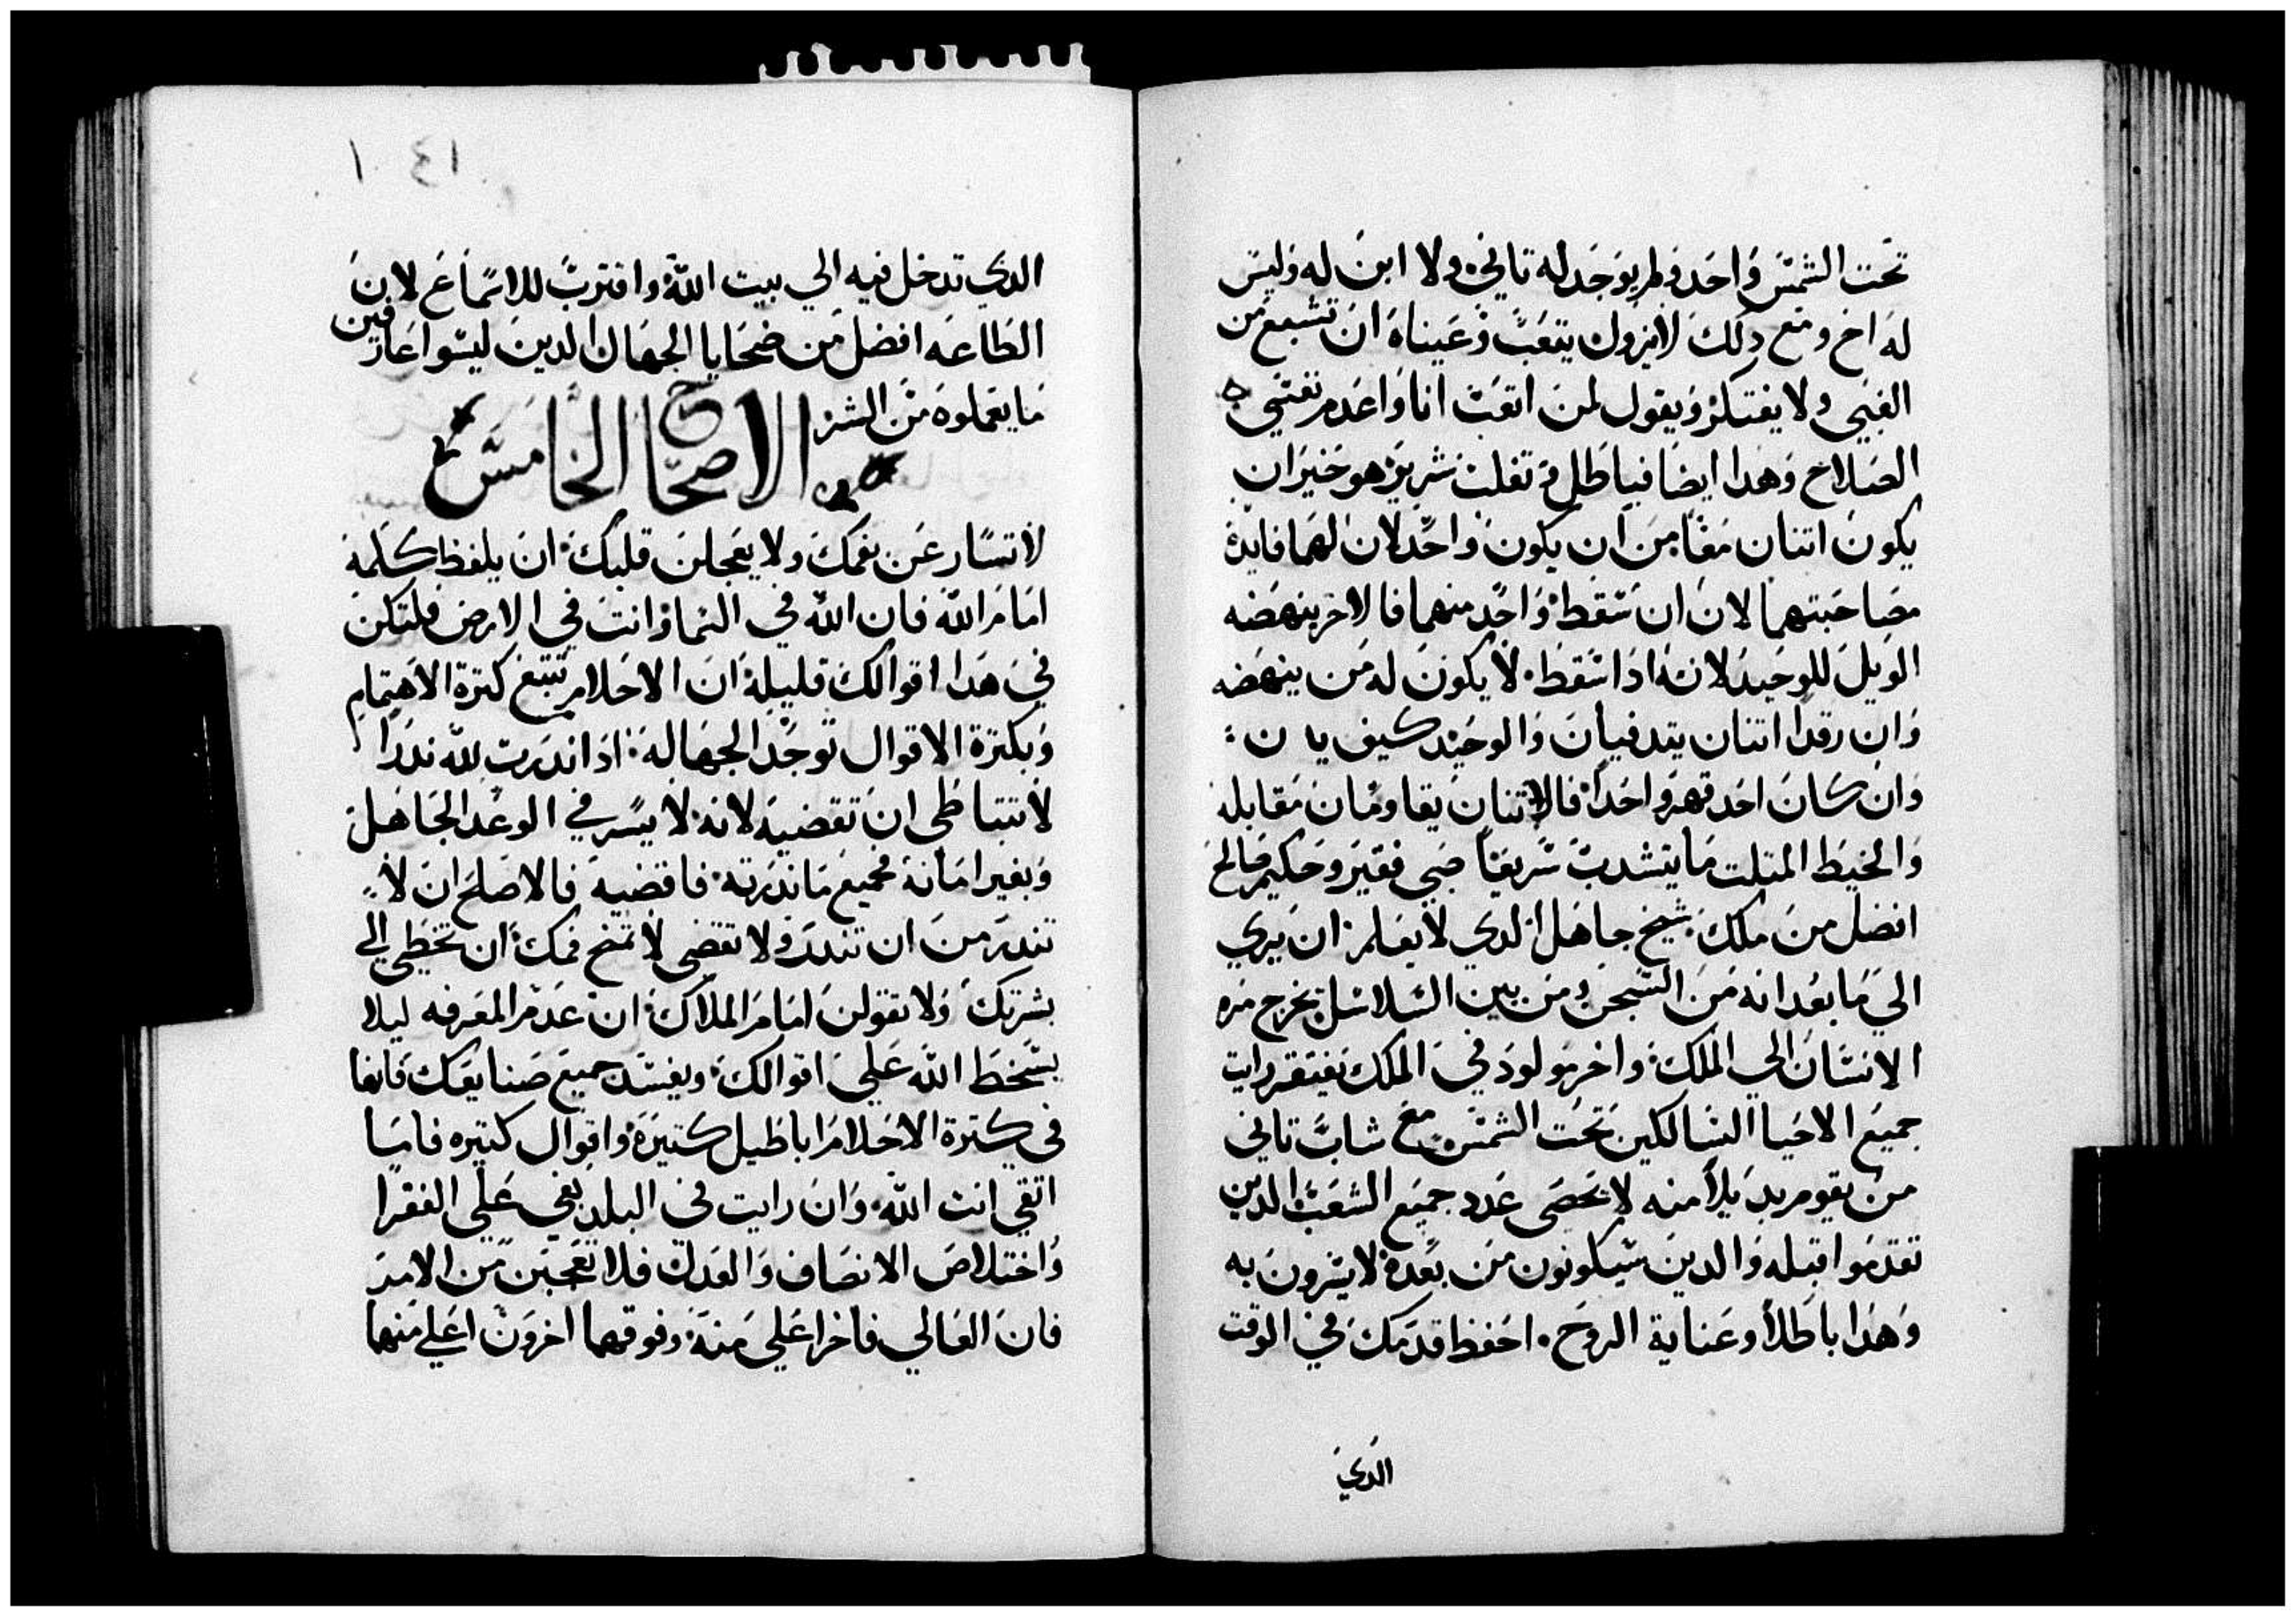 تحت الشمس واحد ولم يوجد له تاني ولا ابن له وليس
له اخ ومع دلك لا يزول يتعب وعيناه ان تشبع من
الغني ولا يفتكر ويقول لمن اتعب انا واعدم نفسي
الصلاح وهدا ايضا فباطل و تفلت شرير هو خير ان
يكون اتنان معا من ان يكون واحد لان لهما فايدة
مصاحبتهما لان ان سقط واحد منهما فالاخر ينهضه
الويل للوحيد لانه ادا سقط لا يكون له من ينهضه
وان رقدا اتنان يتدفيان والوحيد كيف
وان كان احد قهر واحدا فالاتنان يقاومان مقابله
والخيط المتلت ما يتشدب سريعا صبي فقير وحكيم صالح
افضل من ملك شيخ جاهل الدي لا يعلم ان يري
الي ما بعد انه من السجن ومن بين السلاسل يخرج مره
الانسان الي الملك واخر مولود في الملك يفتقر رايت
جميع الاحيا السالكين تحت الشمس مع شاب تاني
من يقوم بديلا منه لا تحصى عدد جميع الشعب الدين
تقدموا قبله والدين سيكونون من بعده لا يسرون به
وهدا باطلا وعناية الروح احفظ قدمك في الوقت
الدي
١٤١
الدي تدخل فيه الي بيت الله واقترب للاستماع لان
الطاعه افضل من ضحايا الجهال الدين ليسوا عارفين
ما يعملوه من الشر
الاصحاح الخامس
لا تسارعن بفمك ولا يعجلن قلبك ان يلفظ كلمة
امام الله فان الله في السما وانت في الارض فلتكن
في هدا اقوالك قليلة ان الاحلام تتبع كترة الاهتمام
وبكترة الاقوال توجد الجهاله ادا ندرت لله ندرا
لا تتباطي ان تقضيه لانه لا يسر في الوعد الجاهل
وبغير امانة فجميع ما ندرته فاقضيه فالاصلح ان لا
تندر من ان تندر ولا تقضي لا تمنح فمك ان تخطي الي
بشرتك ولا تقولن امام الملاك ان عدم المعرفه ليلا
يسخط الله علي اقوالك ويفسد جميع صنايعك فانها
في كترة الاحلام اباطيل كتيرة واقوال كتيره فاما
اتقي انت الله وان رايت في البلد بغي علي الفقرا
واختلاص الانصاف والعدل فلا تعجبن من الامر
فان العالي فاخر اعلي منه وفوقهما اخرون اعلي منهما